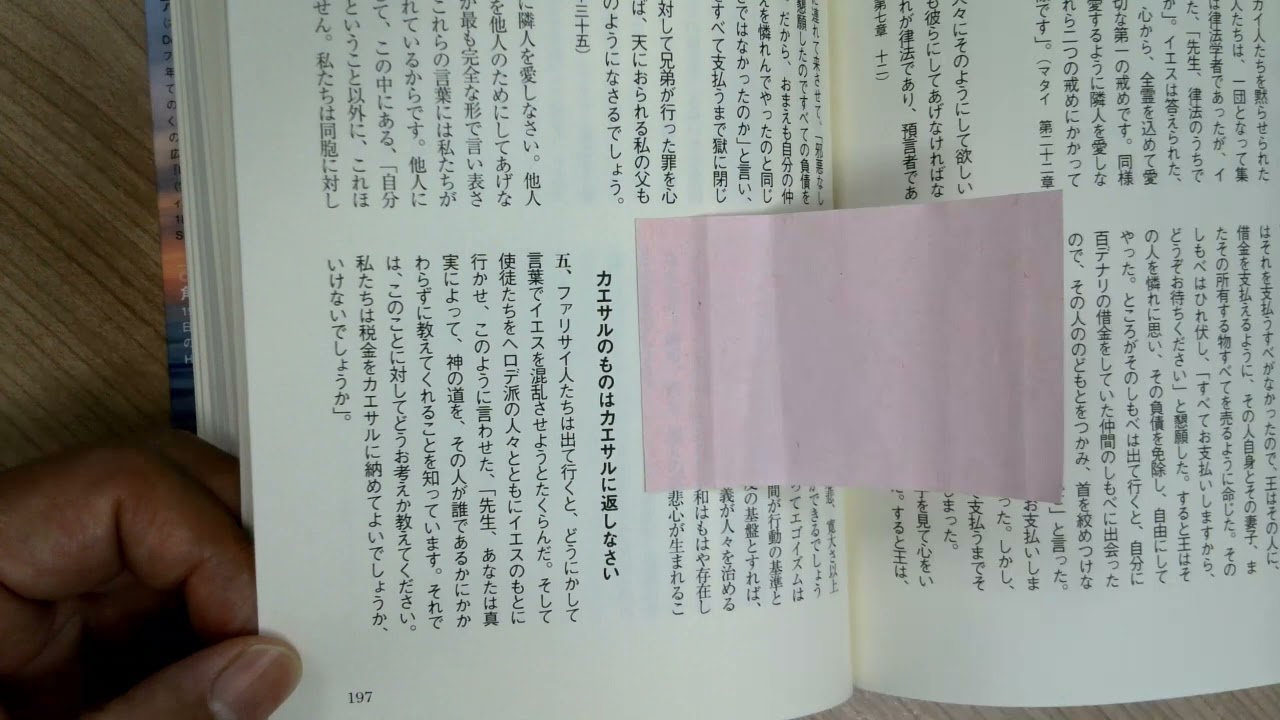 カイ人たちを黙らせられた
人たちは、一団となって集
は律法学者であったが、イ
た、「先生、律法のうちで
か」。イエスは答えられた、
心から、全霊を込めて愛
切な第一の戒めです。同様
愛するように隣人を愛しな
れら二つの戒めにかかって
です」。(マタイ 第二十二章
人々にそのようにして欲しい
も彼らにしてあげなければな
れが律法であり、預言者であ
第七章 十二)
はそれを支払うすべがなかったので、王はその人に、
借金を支払えるように、その人自身とその妻子、ま
たその所有する物すべてを売るように命じた。その
しもべはひれ伏し、「すべてお支払いしますから、
どうぞお待ちください」と懇願した。すると王はそ
の人を憐れに思い、その負債を免除し、自由にして
やった。ところがそのしもべは出て行くと、自分に
百デナリの借金をしていた仲間のしもべに出会った
ので、その人ののどもとをつかみ、首を絞めつけな
」と言った。
お支払いしま
った。しかし、
支払うまでそ
しまった。
子を見て心をい
。すると王は、
に連れて来させて、「邪悪なし
懇願したのですべての負債を
だから、おまえも自分の仲
えを憐れんでやったのと同じ
ではなかったのか」と言い、
すべて支払うまで獄に閉じ
対して兄弟が行った罪を心
ば、天におられる私の父も
のようになさるでしょう。
三十五)
に隣人を愛しなさい。他人
を他人のためにしてあげな
が最も完全な形で言い表さ
これらの言葉には私たちが
れているからです。他人に
て、この中にある、「自分
ということ以外に、これほ
せん。私たちは同胞に対し
ができるでしょう
ってエゴイズムは
間が行動の基準と
の基盤とすれば、
義が人々を治める
和はもはや存在し
悲心が生まれるこ
カエサルのものはカエサルに返しなさい
五、ファリサイ人たちは出て行くと、どうにかして
言葉でイエスを混乱させようとたくらんだ。そして
使徒たちをヘロデ派の人々とともにイエスのもとに
行かせ、このように言わせた、「先生、あなたは真
実によって、神の道を、その人が誰であるかにかか
わらずに教えてくれることを知っています。それで
は、このことに対してどうお考えか教えてください。
私たちは税金をカエサルに納めてよいでしょうか、
いけないでしょうか」。
197